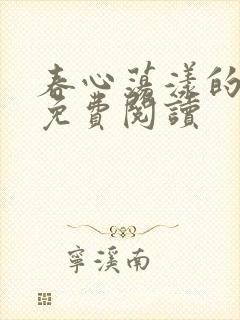 春心荡漾的
免費閱讀
寧溪南